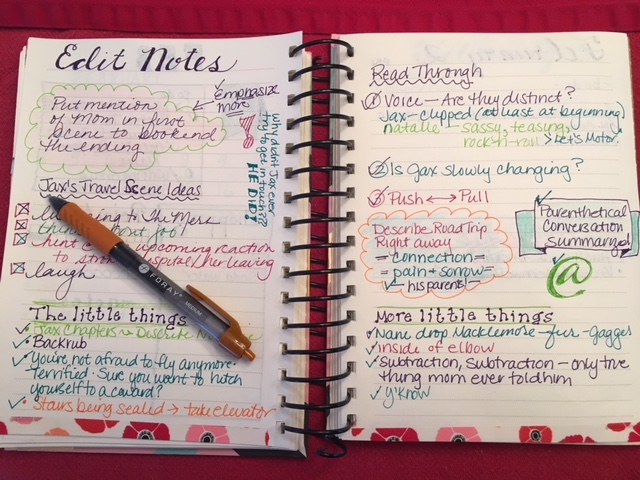 Edit Notes
Put mention
of Mom in first
scene to bookend
the ending
emphasize
more
why didn't Jax ever
try to get in touch??
HE DID!
Jax's Travel Scene Ideas
to The Mere
upcoming reaction
to leaving
laugh
The little things
Jax Chapters → Describe
Backrub
You're not afraid to fly anymore.
Terrified. Sure you want to hitch
yourself to a coward?
Stairs being sealed → take elevator
FORAY
Read Through
1 Voice – Are they distinct?
Jax – clipped (at least at beginning)
natalie – sassy, teasing,
rock-n-roll > Let's Motor.
2 Is Jax slowly changing?
3 Push ↔ Pull
Describe Road Trip
Right away
– connection –
– pain & sorrow –
– his parents –
Parenthetical
Conversation
summaries!
@
More little things
Name drop Macklemore – fur – gagger
inside of elbow
Subtraction, Subtraction – only true
thing mom ever told him
y'know